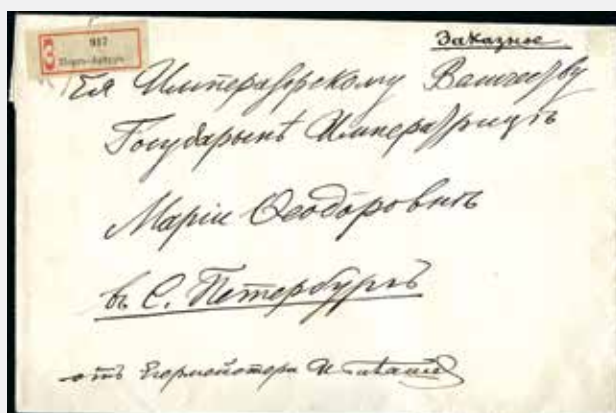 Заказное
З 917
Портъ-Артуръ
Ея Императорскому Величеству
Государынѣ Императрицѣ
Маріи Ѳеодоровнѣ
въ С. Петербургъ
отъ